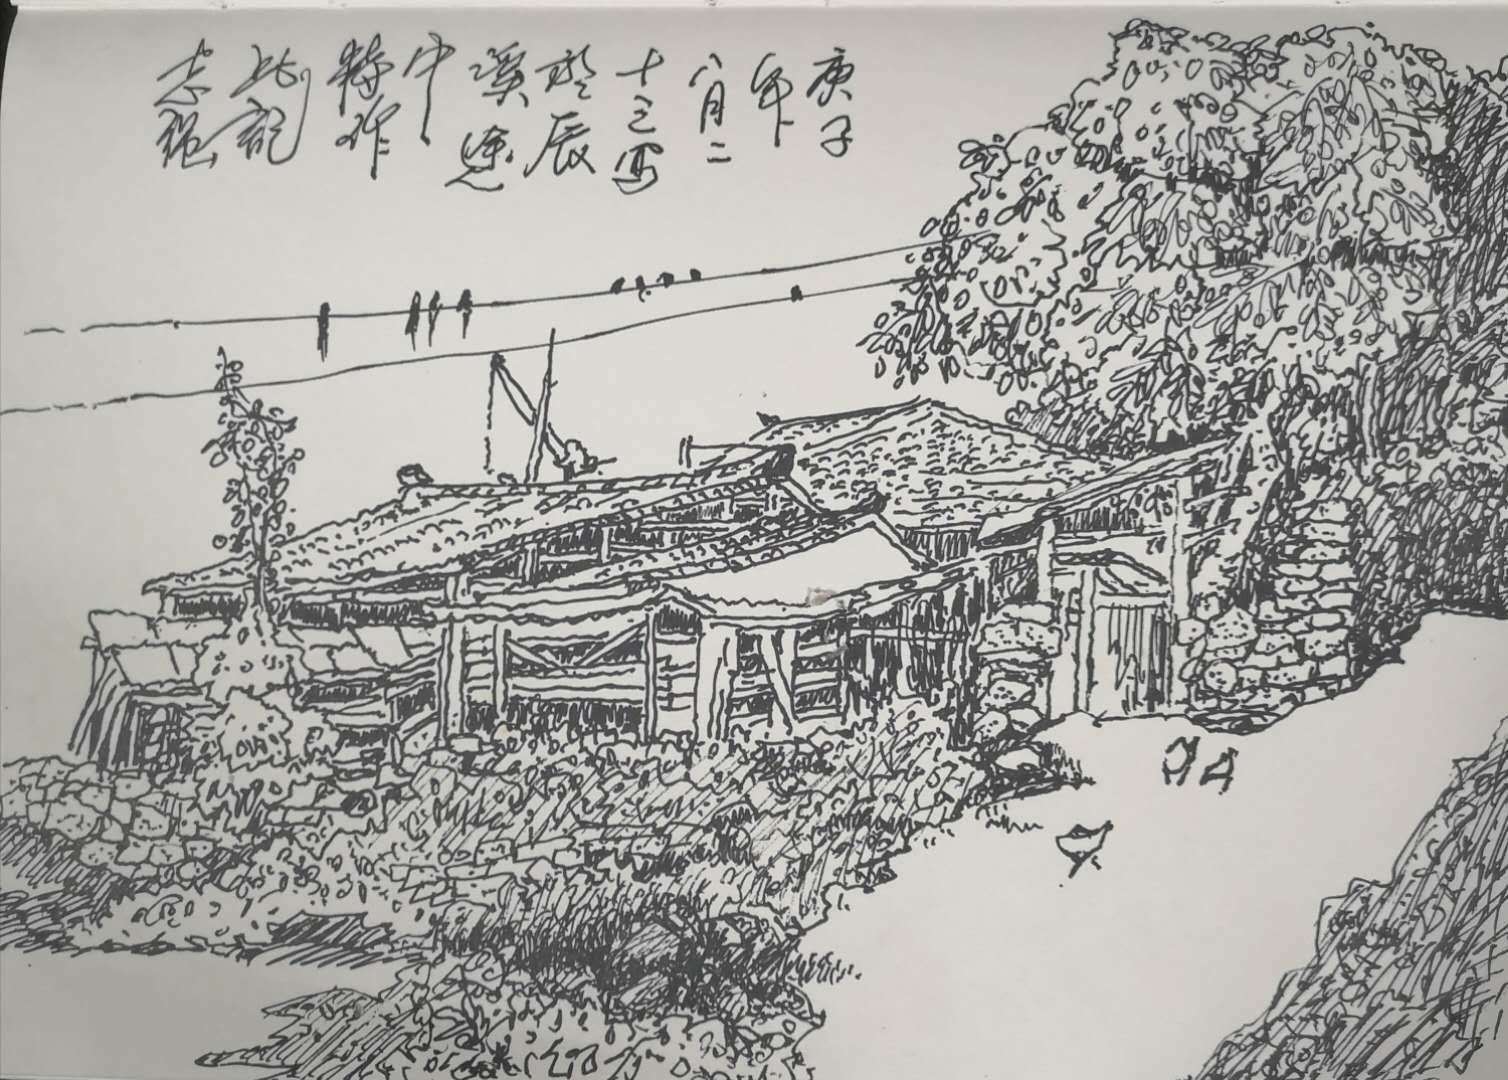 庚子
年
八月二
十三写
於辰
溪途
中
特作
此記
志强